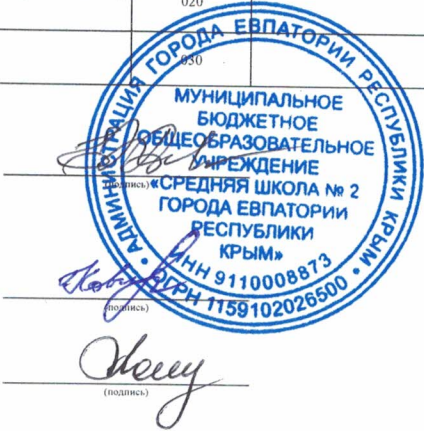 020
030
• АДМИНИСТРАЦИЯ ГОРОДА ЕВПАТОРИИ РЕСПУБЛИКИ КРЫМ •
МУНИЦИПАЛЬНОЕ
БЮДЖЕТНОЕ
ОБЩЕОБРАЗОВАТЕЛЬНОЕ
УЧРЕЖДЕНИЕ
«СРЕДНЯЯ ШКОЛА № 2
ГОРОДА ЕВПАТОРИИ
РЕСПУБЛИКИ
КРЫМ»
ИНН 9110008873
ОГРН 1159102026500
(подпись)
(подпись)
(подпись)